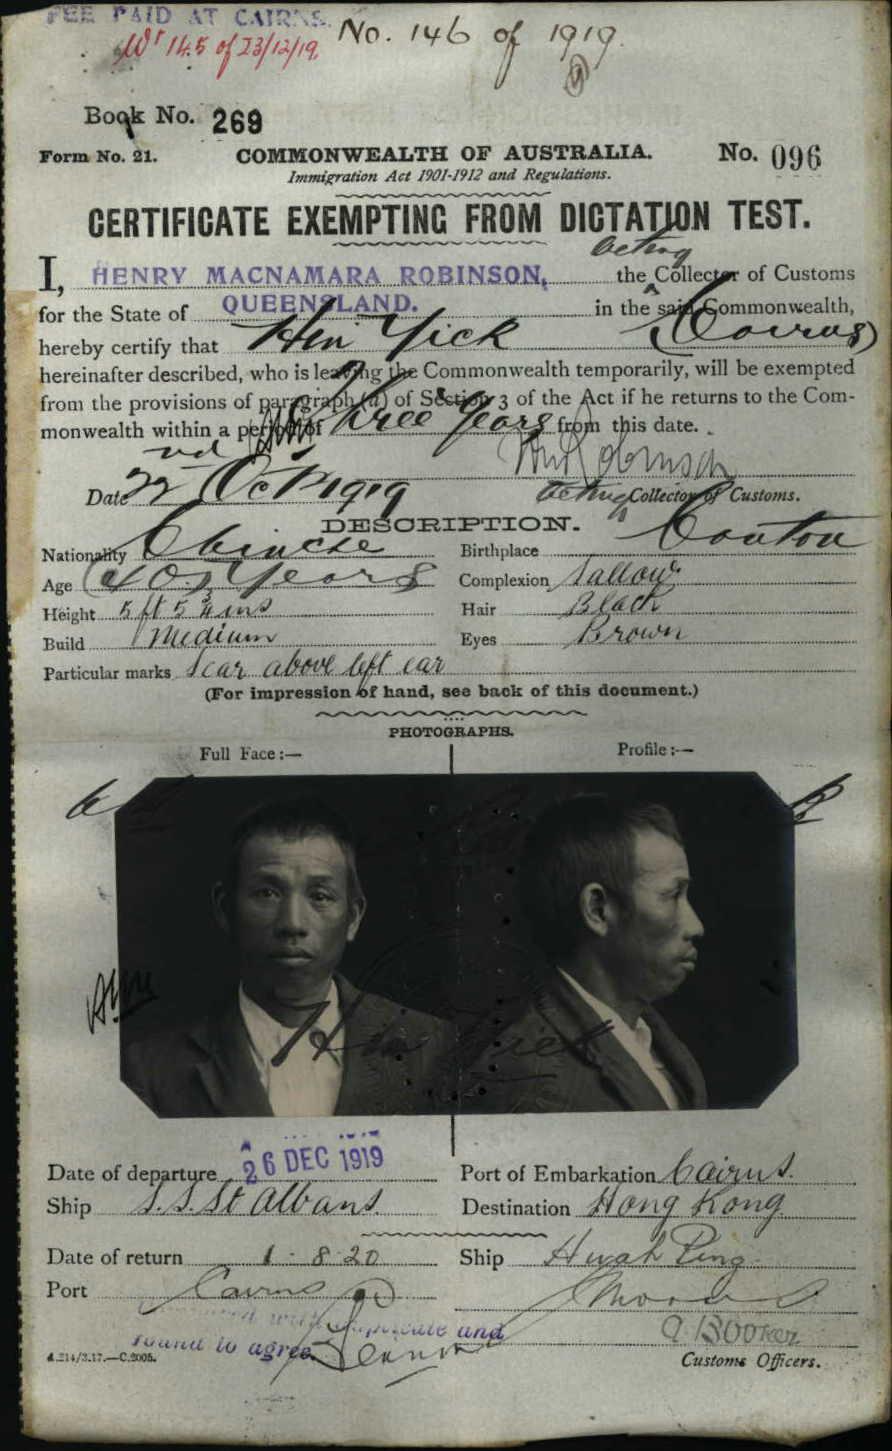 FEE PAID AT CAIRNS.
No. 146 of 1919.
145 of 23/12/19
Book No. 269
Form No. 21. COMMONWEALTH OF AUSTRALIA. No. 096
Immigration Act 1901-1912 and Regulations.
CERTIFICATE EXEMPTING FROM DICTATION TEST.
acting
I, HENRY MACNAMARA ROBINSON, the Collector of Customs
for the State of QUEENSLAND. in the said Commonwealth,
hereby certify that Hin Yick (Cairns)
hereinafter described, who is leaving the Commonwealth temporarily, will be exempted
from the provisions of paragraph (a) of Section 3 of the Act if he returns to the Com-
monwealth within a period of Three Years from this date.
HM Robinson
Date 22nd Oct 1919 acting Collector of Customs.
DESCRIPTION.
Nationality Chinese Birthplace Canton
Age 40 Years Complexion Sallow
Height 5 ft 5 3/4 ins Hair Black
Build Medium Eyes Brown
Particular marks Scar above left ear
(For impression of hand, see back of this document.)
PHOTOGRAPHS.
Full Face:— Profile:—
Hin Yick
Date of departure 26 DEC 1919 Port of Embarkation Cairns.
Ship S.S. St Albans Destination Hong Kong
Date of return 1-8-20 Ship Hwah Ping
Port Cairns
duplicate and
found to agree
A Booker
4.214/3.17.—C.2005. Customs Officers.